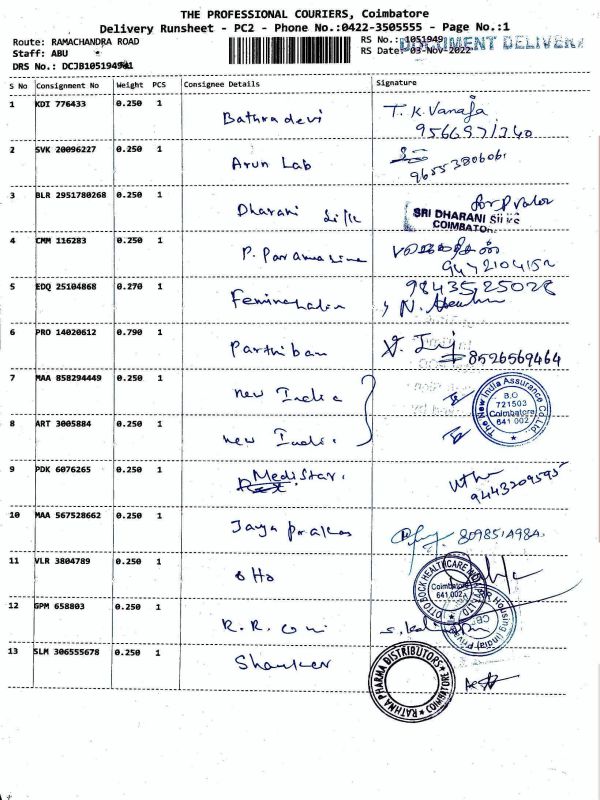 THE PROFESSIONAL COURIERS, Coimbatore
Delivery Runsheet - PC2 - Phone No.:0422-3505555 - Page No.:1
Route: RAMACHANDRA ROAD
RS No.: 1051949
DOCUMENT DELIVERY
Staff: ABU
RS Date: 03-Nov-2022
DRS No.: DCJB1051949
S No Consignment No Weight PCS Consignee Details Signature
1 KDI 776433 0.250 1 Bathra devi T. K. Vanaja
9566971740
2 SVK 20096227 0.250 1 Arun Lab
9655380606
3 BLR 2951780268 0.250 1 Dharani Silk
SRI DHARANI SILKS
COIMBATORE
4 CMM 116283 0.250 1 P. Paramasivm
9442104152
5 EDQ 25104868 0.270 1 9843525028
N.
6 PRO 14020612 0.790 1 Parthiban
8526569464
7 MAA 858294449 0.250 1 New India
The New India Assurance Co.Ltd.
B.O
721503
Coimbatore
641 002
8 ART 3005884 0.250 1 New India
9 PDK 6076265 0.250 1 MediStar.
9443209595
10 MAA 567528662 0.250 1 Jaya prakas
11 VLR 3804789 0.250 1 Otto
OTTO BOCK HEALTHCARE
Coimbatore
641 002
12 GPM 658803 0.250 1 R.R.
Housing (India) Private
13 SLM 306555678 0.250 1 Shanker
RATHNA PHARMA DISTRIBUTORS
COIMBATORE